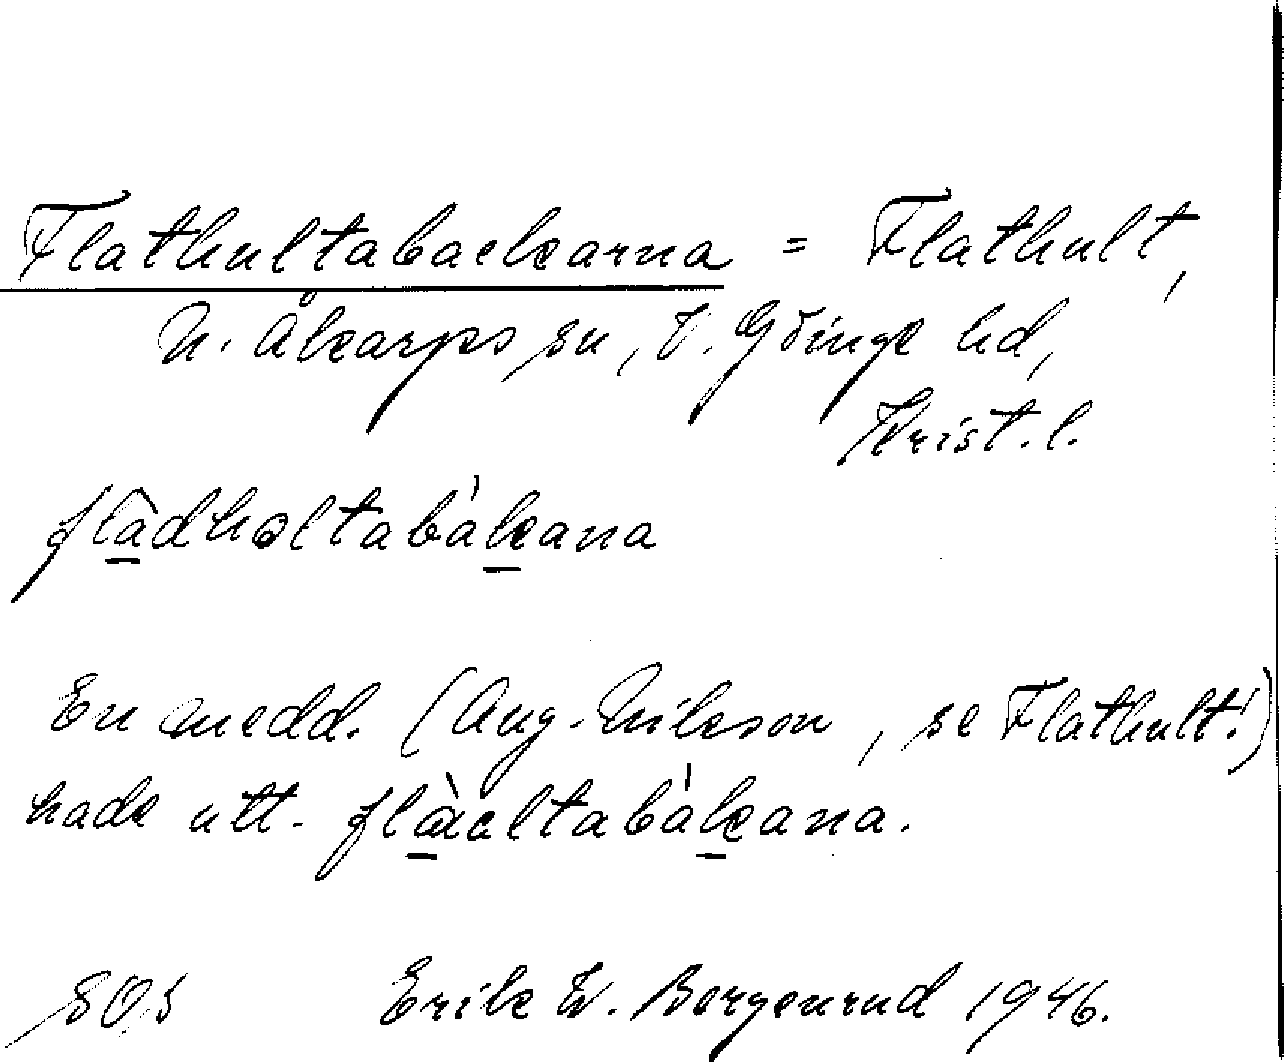 Flathultabackarna = Flathult,
N. Åkarps sn, V. Göinge hd,
Krist. l.
flàdhɘltabàkana
En medd. (Aug. Nilsson, se Flathult!)
hade utt. flàaltabàkana.
Erik W. Bergenrud 1946.